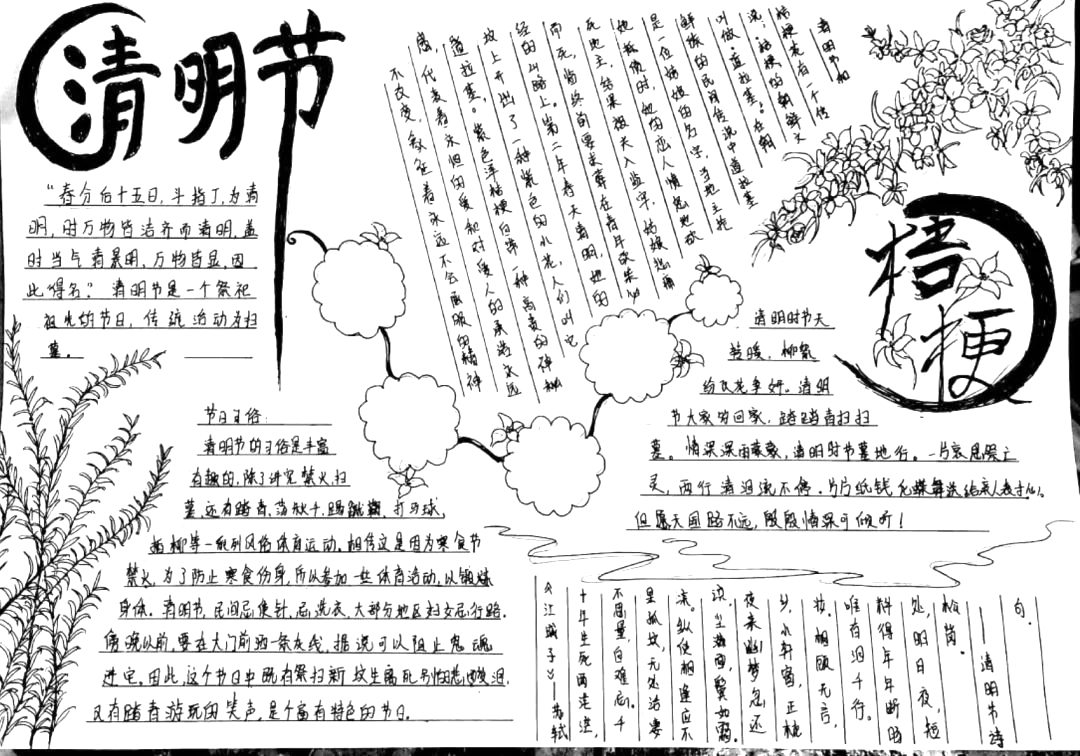 清明节
"春分后十五日,斗指丁,为清
明,时万物皆洁齐而清明,盖
时当气清景明,万物皆显,因
此得名。"清明节是一个祭祀
祖先的节日,传统活动为扫
墓。
清明节和
桔梗花有一个传
说,桔梗的朝鲜文
叫做"道拉基"。在朝
鲜族的民间传说中道拉基
是一位姑娘的名字,当地主抢
她抵债时,她的恋人愤怒地砍
死地主,结果被关入监牢,姑娘悲痛
而死,临终前要求葬在青年砍柴必
经的山路上。第二年春天清明,她的
坟上开出了一种紫色的小花,人们叫它
道拉基。紫色洋桔梗 一种高贵的神秘
感,代表着永恒的爱和对爱人的承诺永远
不改变,象征着永远不会屈服的精神
桔梗
清明时节天
转暖,柳絮
纷飞花争妍。清明
节大家勿回家,踏踏青扫扫
墓。情深深雨蒙蒙,清明时节墓地行。一片哀思祭亡
灵,两行清泪流不停。片片纸钱化蝶舞送给亲人表寸心。
但愿天国路不远,殷殷情深可倾听!
节日习俗:
清明节的习俗是丰富
有趣的,除了讲究禁火,扫
墓,还有踏青,荡秋千,踢蹴鞠,打马球,
插柳等一系列风俗体育运动。相传这是因为寒食节
禁火,为了防止寒食伤身,所以参加一些体育活动,以锻炼
身体。清明节,民间忌使针,忌洗衣,大部分地区妇女忌行路。
傍晚以前,要在大门前洒一条灰线,据说可以阻止鬼魂
进宅。因此,这个节日中既有祭扫新坟生离死别的悲酸泪
又有踏青游玩的笑声,是个富有特色的节日。
《江城子》——苏轼
十年生死两茫茫,
不思量,自难忘。千
里孤坟,无处话凄
凉。纵使相逢应不
识,尘满面,鬓如霜。
夜来幽梦忽还
乡,小轩窗,正梳
妆。相顾无言,
唯有泪千行。
料得年年断肠
处,明日夜,短
松岗。
——清明节诗
句.